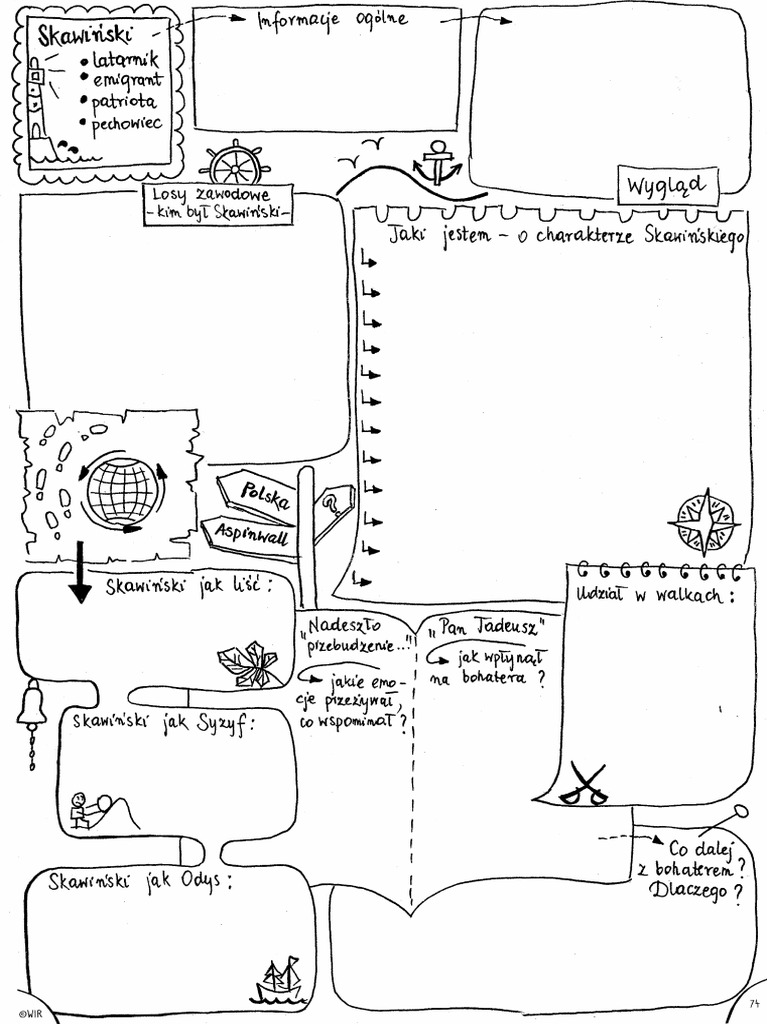 Skawiński
• latarnik
• emigrant
• patriota
• pechowiec
Informacje ogólne
Wygląd
Losy zawodowe
- kim był Skawiński -
Jaki jestem - o charakterze Skawińskiego
Polska
?
Aspinwall
Skawiński jak liść :
Udział w walkach :
"Nadeszło
przebudzenie..."
jakie emo-
cje przeżywał,
co wspominał ?
"Pan Tadeusz"
jak wpłynął
na bohatera ?
Skawiński jak Syzyf :
Co dalej
z bohaterem ?
Dlaczego ?
Skawiński jak Odys :
©WIR
74